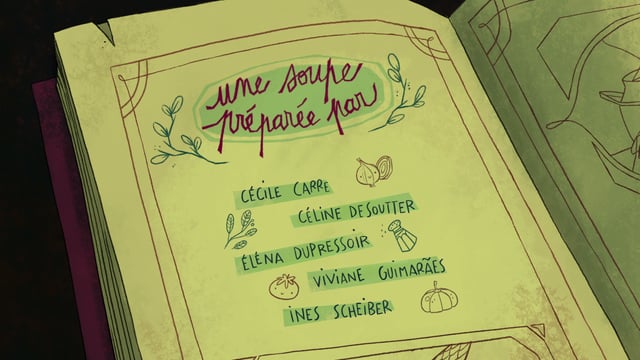 une soupe
préparée par
CÉCILE CARRE
CÉLINE DESOUTTER
ÉLÉNA DUPRESSOIR
VIVIANE GUIMARÃES
INES SCHEIBER